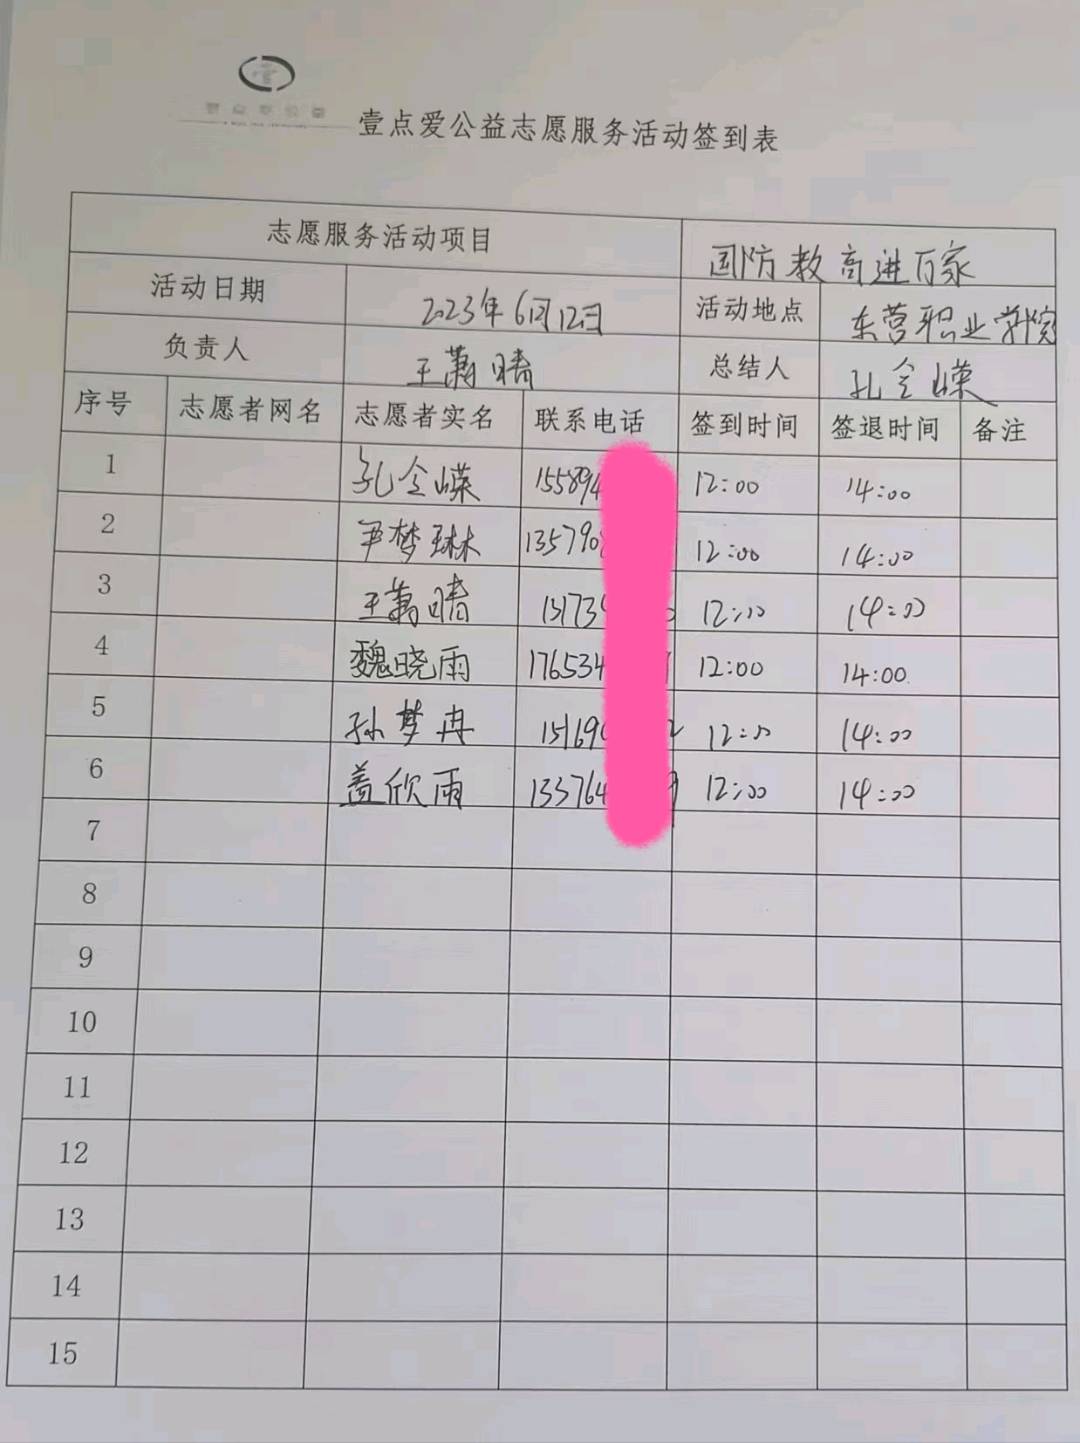 壹点爱公益志愿服务活动签到表
志愿服务活动项目 国防教育进万家
活动日期 2023年6月12日 活动地点 东营职业学院
负责人 王萧晴 总结人 孔令嵘
序号 志愿者网名 志愿者实名 联系电话 签到时间 签退时间 备注
1 孔令嵘 155894 12:00 14:00
2 尹梦琳 135790 12:00 14:00
3 王萧晴 15173 12:00 14:00
4 魏晓雨 176534 12:00 14:00
5 孙梦冉 15169 2 12:00 14:00
6 盖欣雨 133764 9 12:00 14:00
7
8
9
10
11
12
13
14
15